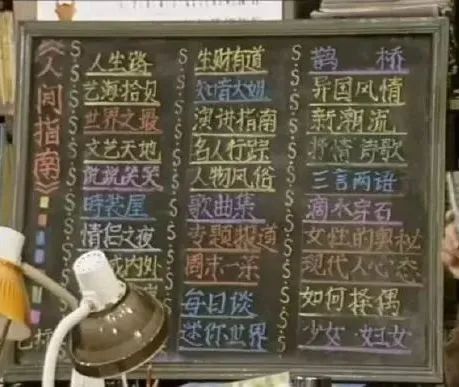 《人间指南》
人生路
艺海拾贝
世界之最
文艺天地
说说笑笑
時装屋
情侣之夜
城内外
生财有道
知音大姐
演讲指南
名人行踪
人物风俗
歌曲集
专题报道
周末一菜
每日谈
迷你世界
鹊桥
异国风情
新潮流
抒情诗歌
三言两语
滴水穿石
女性的奥秘
现代人心态
如何择偶
少女·妇女